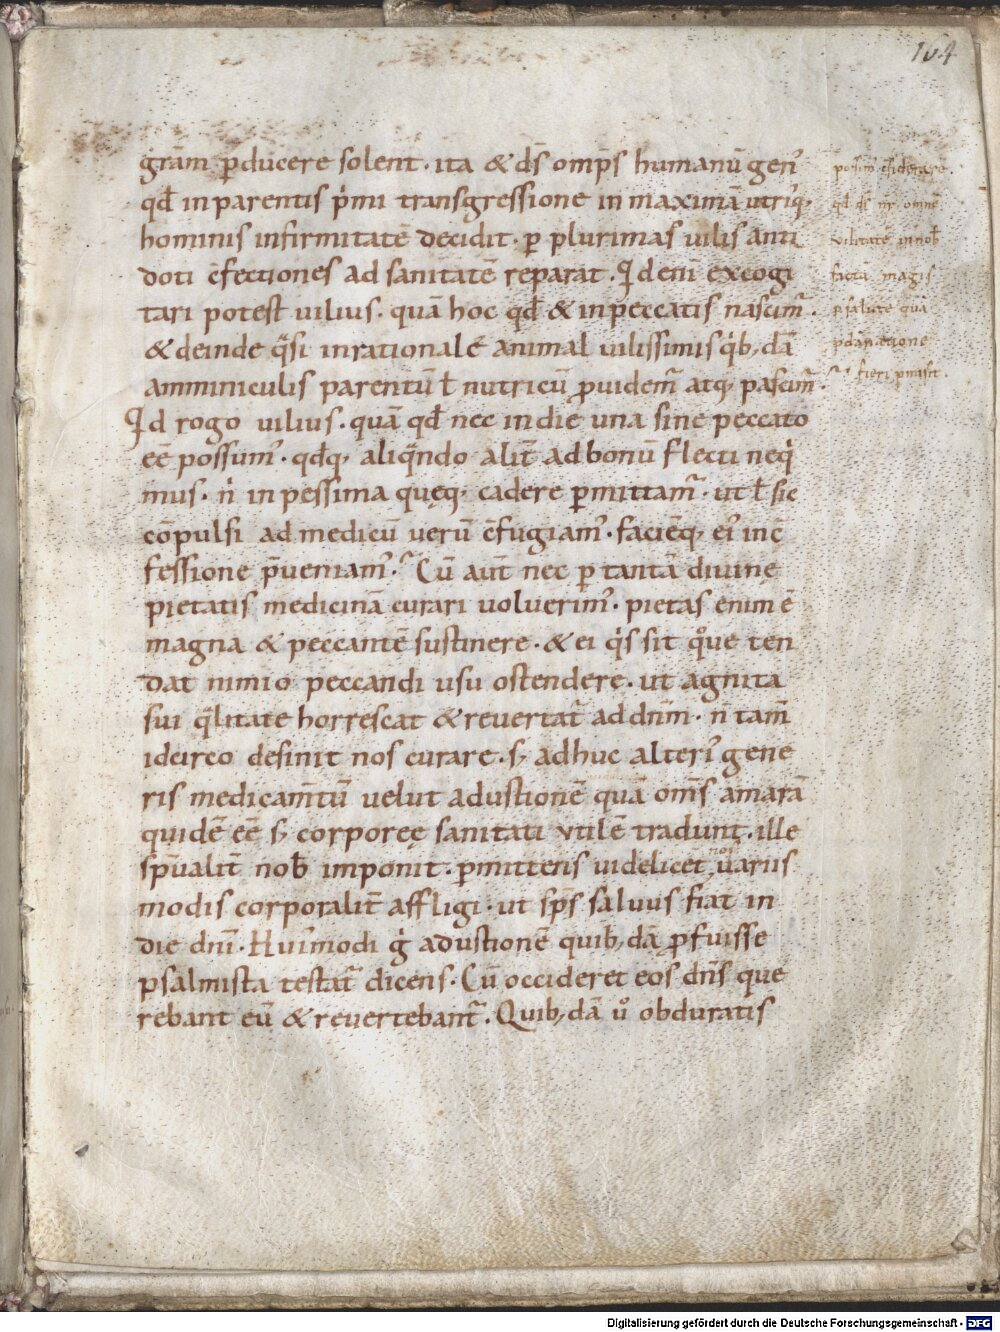 104
grām ꝑducere solent · ita & d̄s omp̄s humanū genꝰ
qđ in parentis pͥmi transgressione in maximā utriꝰq;
hominis infirmitatē decidit · ꝑ plurimas uilis anti
doti c̄fectiones ad sanitatē reparat · Qͥd eni excogi
tari potest uilius · quā hoc qđ & in peccatis nascim̄ ·
& deinde qͣsi inrationale animal uilissimis qͥb;dā
amminiculis parentū ł nutricū ꝓuidem̄ atq; pascim̄ ·
Qͥd rogo uilius · quā qđ nec in die una sine peccato
eē possumꝰ · qdq; aliqͣndo alit̄ ad bonū flecti neqͥ
mus · nͥ in pessima quęq; cadere ꝑmittam̄ · ut ł sic
cōpulsi ad medicū uerū c̄fugiamꝰ · faciēq; eiꝰ in c̄
fessione p̄ueniamꝰ · Cū aut̄ nec ꝑ tantā diuinę
pietatis medicinā curari uoluerimꝰ · pietas enim ē
magna & peccantē sustinere · & ei qͥs sit qͦue ten
dat nimio peccandi usu ostendere · ut agnita
sui qͣlitate horrescat & reuertat̄ ad dn̄m · n̄ tam̄
idcirco desinit nos curare · s; adhuc alteriꝰ gene
ris medicam̄tū uelut adustionē quā om̄s amarā
quidē eē s; corporeę sanitati vtilē tradunt · ille
sp̄ualit̄ nob̄ imponit · ꝑmittens uidelicet nos uariis
modis corporalit̄ affligi · ut sp̄s saluus fiat in
die dn̄i · Huiꝰmodi gͥ adustionē quib;dā ꝓfuisse
psalmista testat̄ dicens · Cū occideret eos dn̄s que
rebant eū & reuertebant̄ · Quib;dā uͦ obduratis
possim c̄siderare ·
qđ d̄s nr̄ omnē
uilitatē in nob̄
facta magis
ꝑ salute quā
fieri ꝑmisit ·
Digitalisierung gefördert durch die Deutsche Forschungsgemeinschaft - DFG